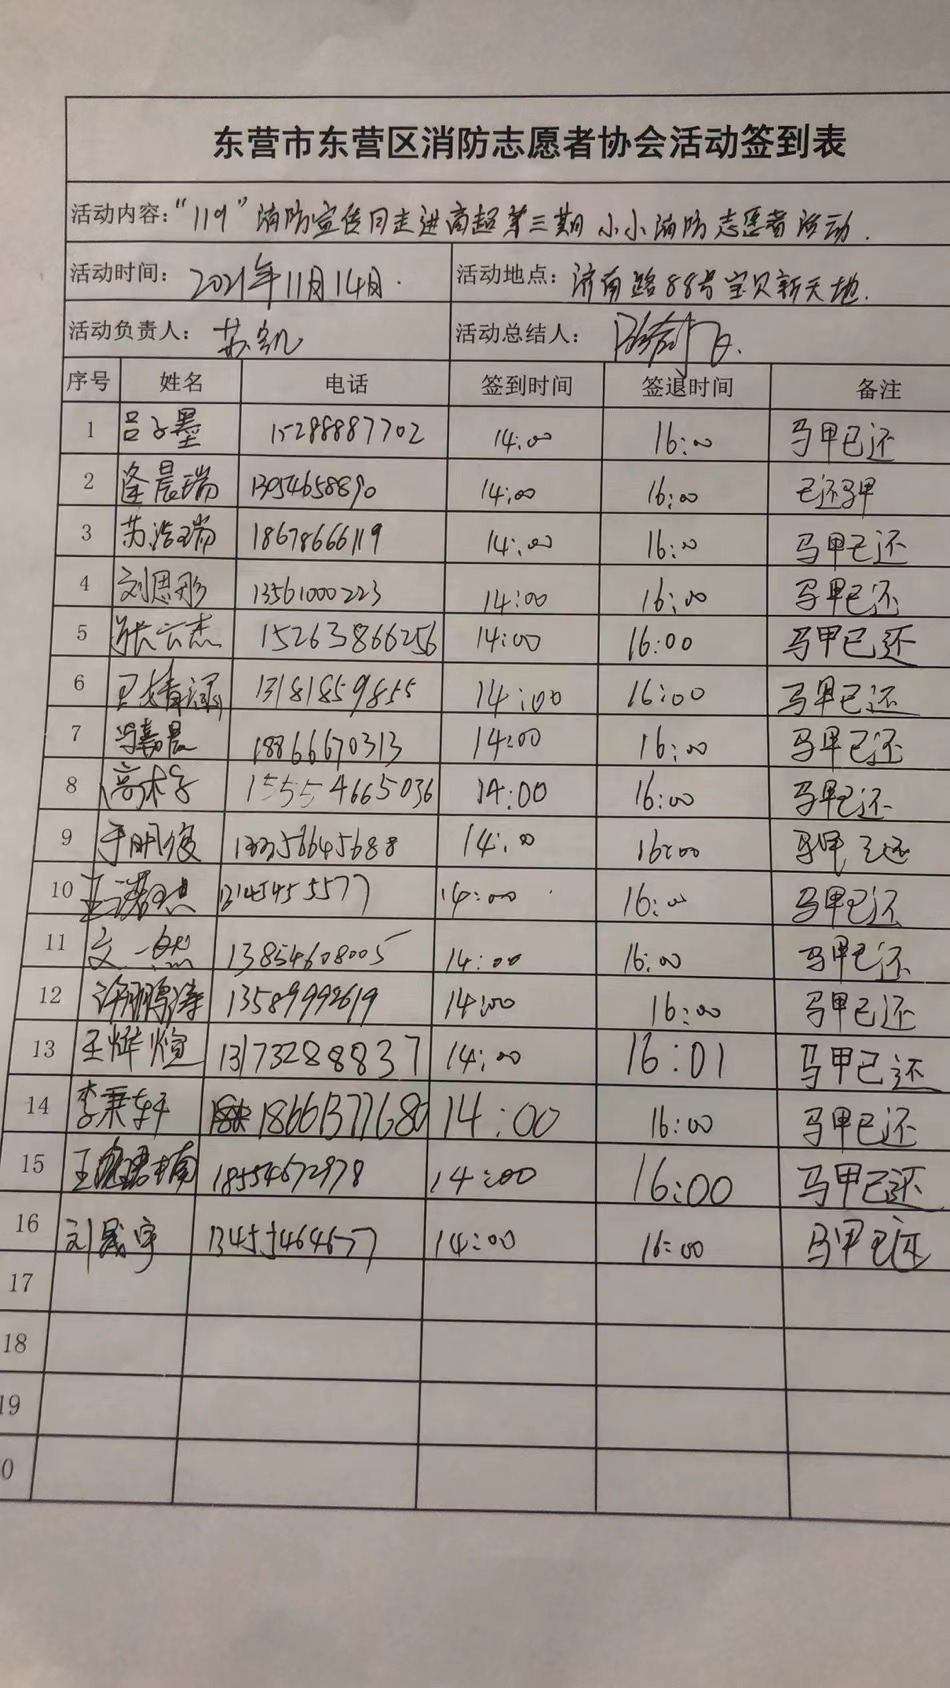 东营市东营区消防志愿者协会活动签到表
活动内容：“119”消防宣传月走进商超第三期小小消防志愿者活动.
活动时间： 2021年11月14日. 活动地点： 济南路88号宝贝新天地.
活动负责人： 苏凯 活动总结人：
序号 姓名 电话 签到时间 签退时间 备注
1 吕子墨 15288887702 14:00 16:00 马甲已还
2 逄晨瑞 13054658890 14:00 16:00 已还马甲
3 苏浩瑞 18678666119 14:00 16:00 马甲已还
4 刘思彤 13561000223 14:00 16:00 马甲已还
5 张云杰 15263866256 14:00 16:00 马甲已还
6 13181859855 14:00 16:00 马甲已还
7 冯嘉晨 18866670313 14:00 16:00 马甲已还
8 15554665036 14:00 16:00 马甲已还
9 于明俊 14:00 16:00 马甲已还
10 14:00 16:00 马甲已还
11 文一然 13854608005 14:00 16:00 马甲已还
12 许鹏涛 13589992619 14:00 16:00 马甲已还
13 王烨煊 13173288837 14:00 16:01 马甲已还
14 李秉轩 14:00 16:00 马甲已还
15 18554672978 14:00 16:00 马甲已还
16 刘晟宇 14:00 16:00 马甲已还
17
18
19